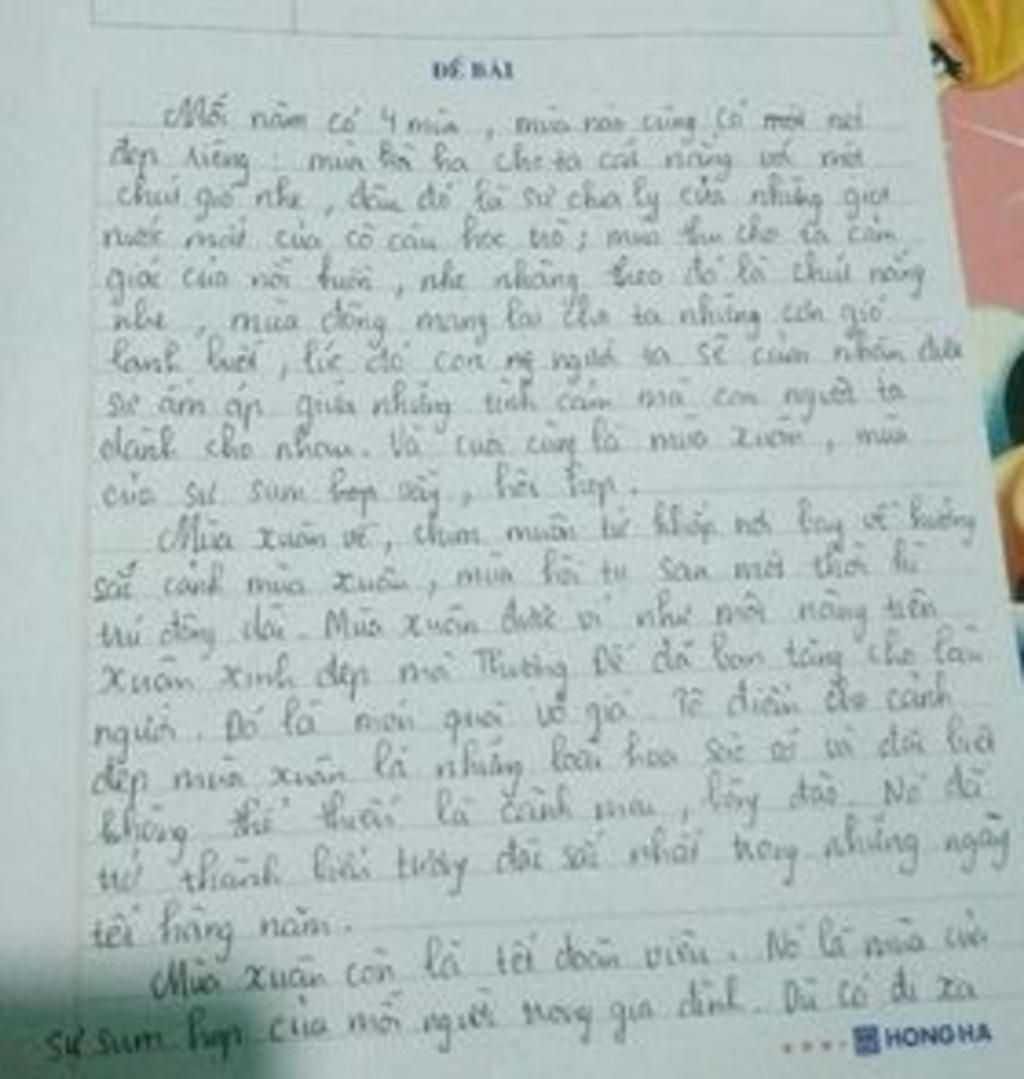 ĐỀ BÀI
Mỗi năm có 4 mùa, mùa nào cũng có một nét
đẹp riêng: mùa hạ cho ta cái nắng với một
chút gió nhẹ, đâu đó là sự chia ly của những giọt
nước mắt của cô cậu học trò; mùa thu cho ta cảm
giác của nỗi buồn, nhẹ nhàng theo đó là chút nắng
nhẹ, mùa đông mang lại cho ta những cơn gió
lạnh buốt, lúc đó con người ta sẽ cảm nhận được
sự ấm áp giữa những tình cảm mà con người ta
dành cho nhau. Và cuối cùng là mùa xuân, mùa
của sự sum họp vầy, hồi hộp.
Mùa xuân về, chim muôn từ khắp nơi bay về hưởng
sắc cảnh mùa xuân, mùa hội tụ sau một thời kì
trú đông dài. Mùa xuân được ví như một nàng tiên
xuân xinh đẹp mà Thượng Đế đã ban tặng cho loài
người. Đó là món quà vô giá. Tô điểm cho cảnh
đẹp mùa xuân là những loài hoa sặc sỡ và đặc biệt
không thể thiếu là cành mai, bông đào. Nó đã
trở thành biểu tượng đặc sắc nhất trong những ngày
tết hằng năm.
Mùa xuân còn là tết đoàn viên. Nó là mùa của
sự sum họp của mỗi người trong gia đình. Dù có đi xa
HONG HA